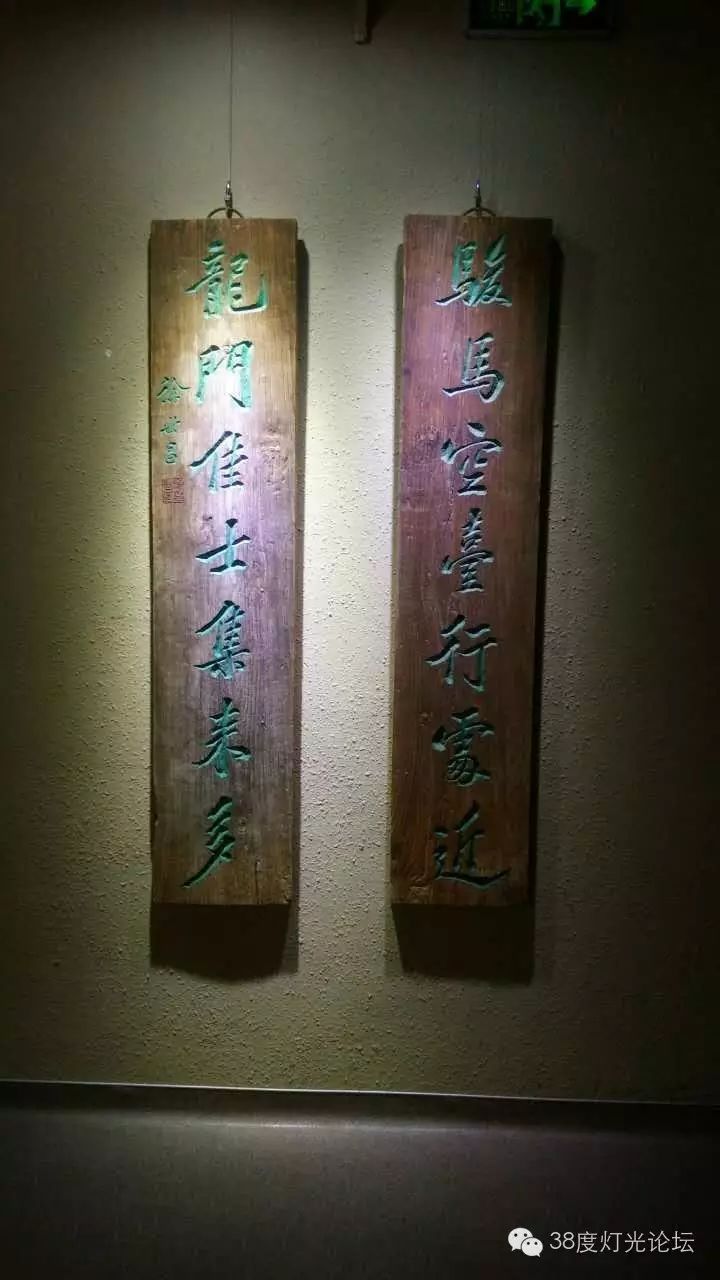 駿馬空臺行處近
龍門佳士集來多
徐世昌
38度灯光论坛